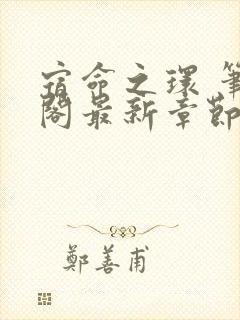 宿命之環 筆
閣最新章節
鄭善甫